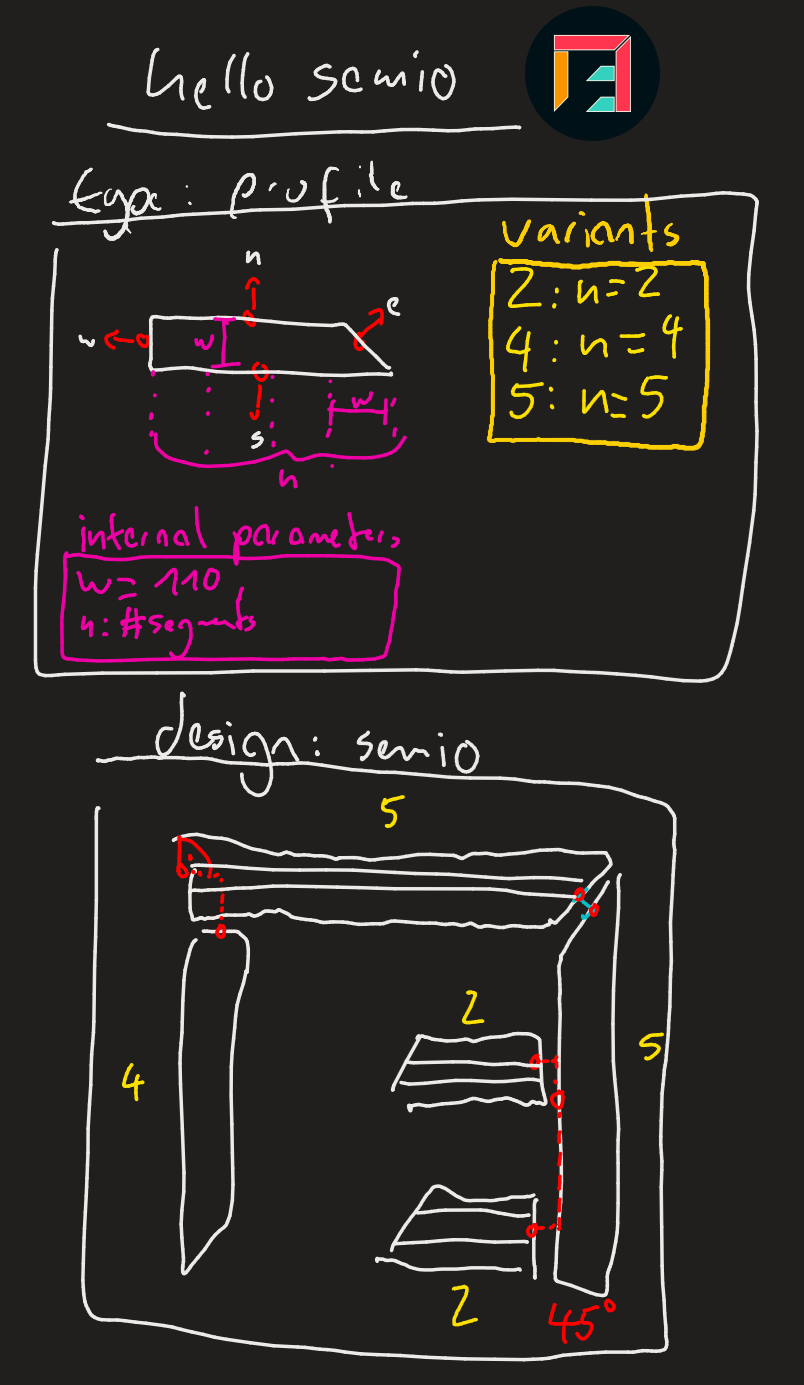 hello semio
type: profile
variants
2: n=2
4: n=4
5: n=5
n
e
w
w
w
s
n
internal parameters
w= 110
n: #segments
design: semio
5
2
5
4
2
45°